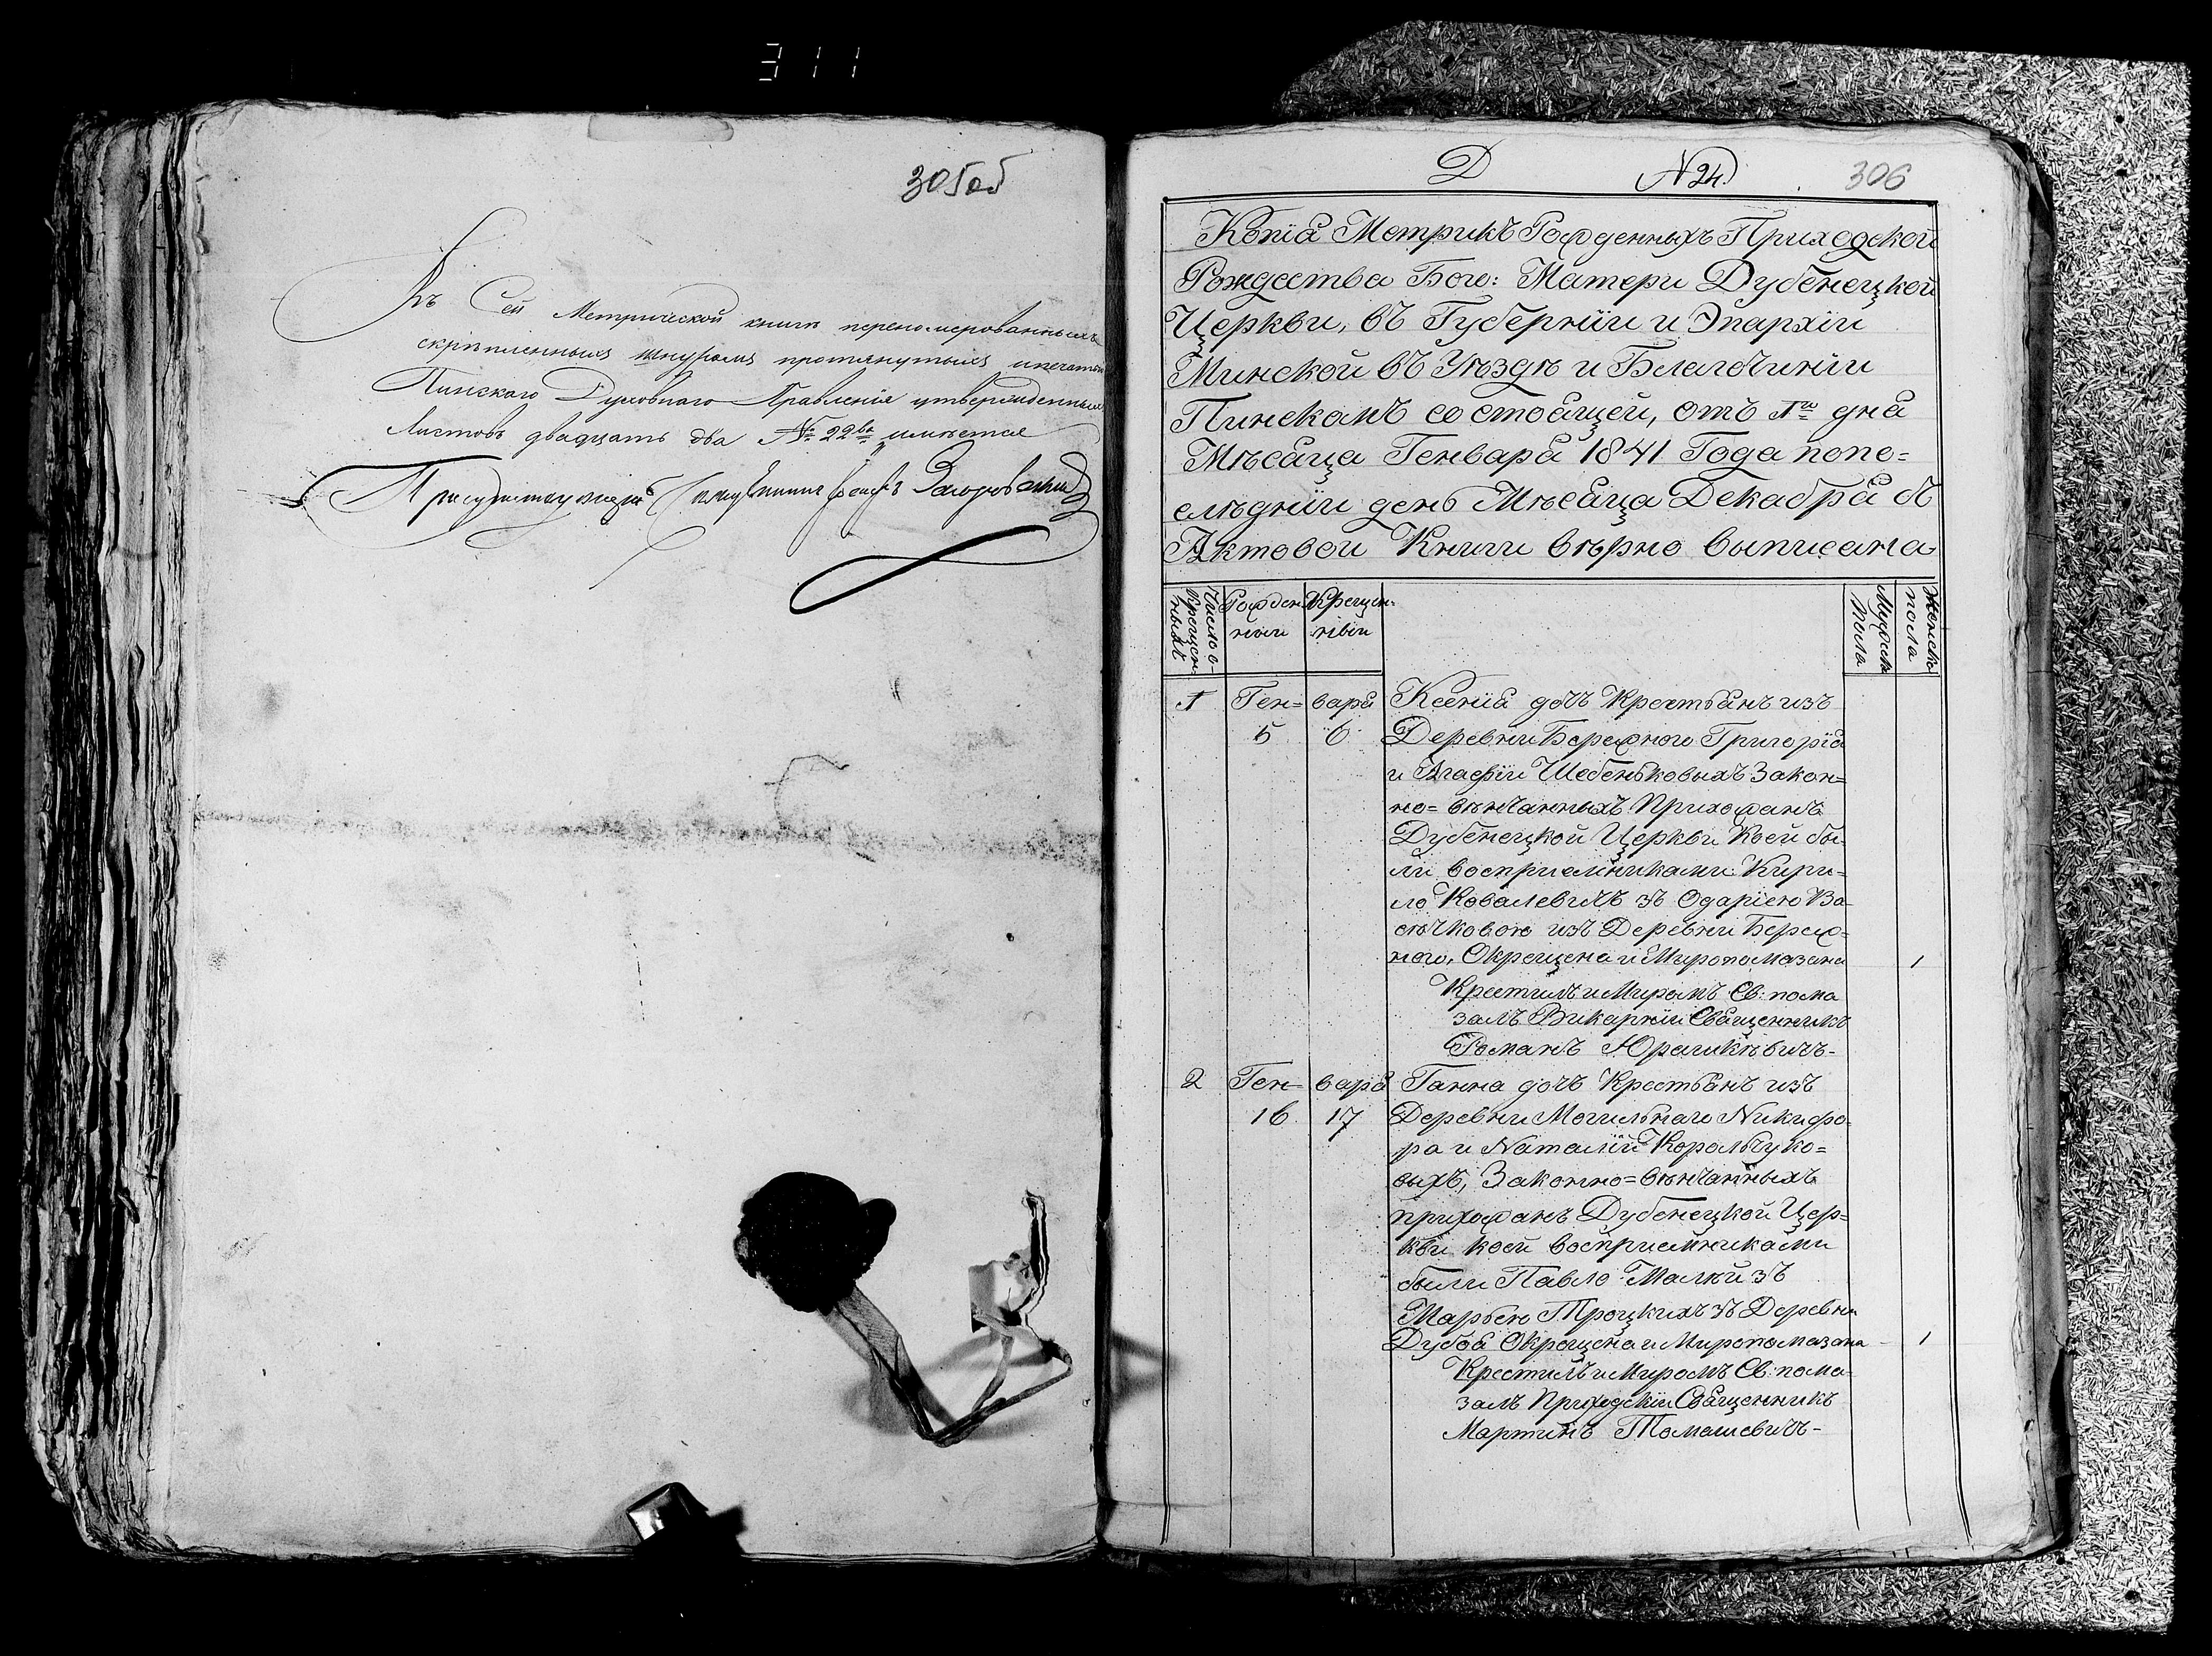 311
305об
Въ Сей Метрической книги переномерованныхъ
скрѣпленныхъ шнуромъ протянутыхъ ипечатью
Пинского Духовнаго Правленія утвержденныхъ
Листовъ двадцать два № 22ва имѣется
Присутствующій
Д №24. 306
Копія Метрикъ Рожденныхъ Приходской
Рождества Бого: Матери Дубенецкой
Церкви, въ Губерніи и Эпархіи
Минской въ Уѣздѣ и Благочиніи
Пинскомъ состоящей, отъ 1го дня
Мѣсяца Генваря 1841 Года попо=
слѣдній день Мѣсяца Декабря съ
Актовой Книги вѣрно выписана
Число о- крещен- ныхъ
Рожден ніи
Крещен- ніи
Мужеск пола
Женск пола
1 Ген= варя Ксенія дочъ Крестьянъ изъ
5 6 Деревни Бережного Григорія
и Агафіи Шебеньковыхъ Закон=
но=вѣнчанныхъ Прихожанъ
Дубенецкой Церкви Коей бы-
ли воспріемниками: Кири=
ло Ковалевичъ зъ Одаріею Ва-
сючковою изъ Деревни Береж=
ного, Окрещена и Миропомазана 1
Крестилъ и Миромъ Св: пома
залъ Викарній Священникъ
Романъ Юрашкѣвичъ-
2 Ген= варя Ганна дочъ Крестьянъ изъ
16 17 Деревни Могильнаго Никифо
ра и Наталіи Корольчуко=
выхъ, Законно=вѣнчанныхъ
прихожанъ Дубенецкой Цер=
кви коей воспріемниками
были Павло Малюй зъ
Марьею Троцкихъ зъ Деревни
Дубоя Окрещена и Миропомазана 1
Крестилъ и Миромъ Св: пома-
залъ Приходскій Священникъ
Мартинъ Томашевичъ-